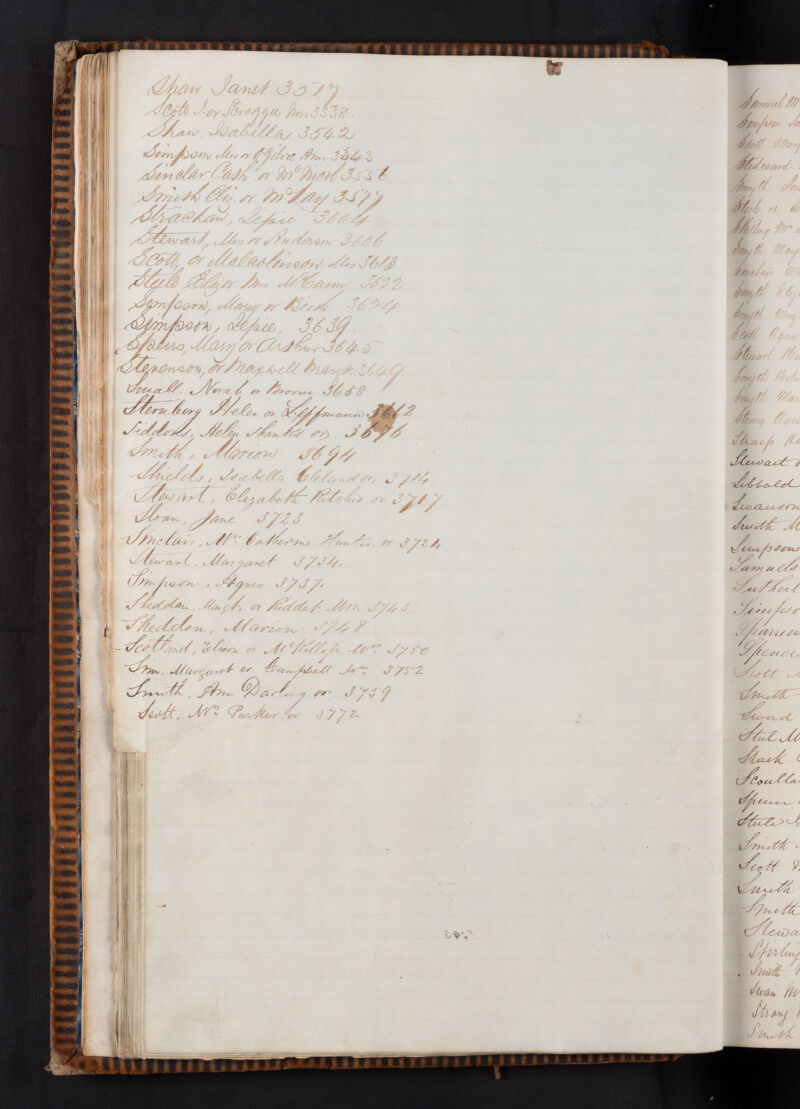 Shaw Janet 3517
Scott J. or Scrogga Mrs 3538.
Shaw. Isabella 3542
Simpson Mrs or Ogilvie Ann 3543
Sinclar Cath or Mc 3556
Smith Eliz. or McKay 3577
Strachan, Jepsie 3604
Stewart, Mrs or Anderson 3606
Scott, or Malcolmson Mrs 3613
Steele Eliz or Mrs McCann 3622
Simpson, Mary or Beith 3624
Simpson, Jepsie, 3639.
Speirs, Mary or Arthur 3645
Stevenson, or Maxwell Margt 3649
Small. Norah or 3658
Sternberg Helen or Leffmann 3662
Siddons, Helen Shanks or 3676
Smith, Marion 3694
Shields, Isabella Cleland or, 3714
Stewart, Elizabeth Ritchie or 3717
Sloan, Jane 3723
Sinclair, Mrs Catherine Hunter or 3724
Stewart, Margaret 3734.
Simpson, Agnes 3737.
Sheddan, Margt. or Riddel Mrs. 3743.
Shedden, Marion 3748
Scotland, Elison or McKillop Mrs. 3750
Sim, Margaret or Campbell Mrs 3752
Smith, Ann Darling or 3759
Scott, Mrs Parker or 3772
Samuel M
Simpson
Scott Mary
Smyth
Steele or
Stirling Mrs
Smyth Mary
Sinclair
Smyth Eliz
Smyth Mary
Scott Agnes
Stewart
Smyth
Smyth
Strang Agnes
Sharp
Stewart
Sibbald
Swanson
Smith M
Simpson
Samuels
Sutherl
Simpso
Spence
Scott
Smith
Sword
Steel
Stark
Scoulla
Steele
Smith
Scott
Smith
Smith
Stewa
Stirling
Smith
Swan
Strang
Smith